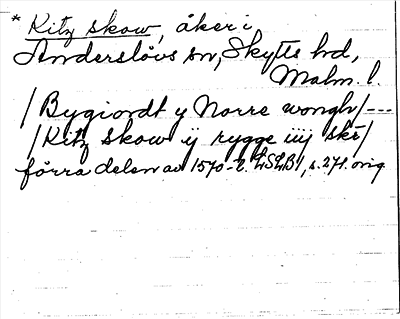 * Kitz skow, åker i
Anderslövs sn, Skytts hd,
Malm. l.
/ Bygiordt y Norre wongh / ---
/ Kitz skow ij rygge iiij skr /
förra delen av 1570-t. LSLB1, s. 271. orig.